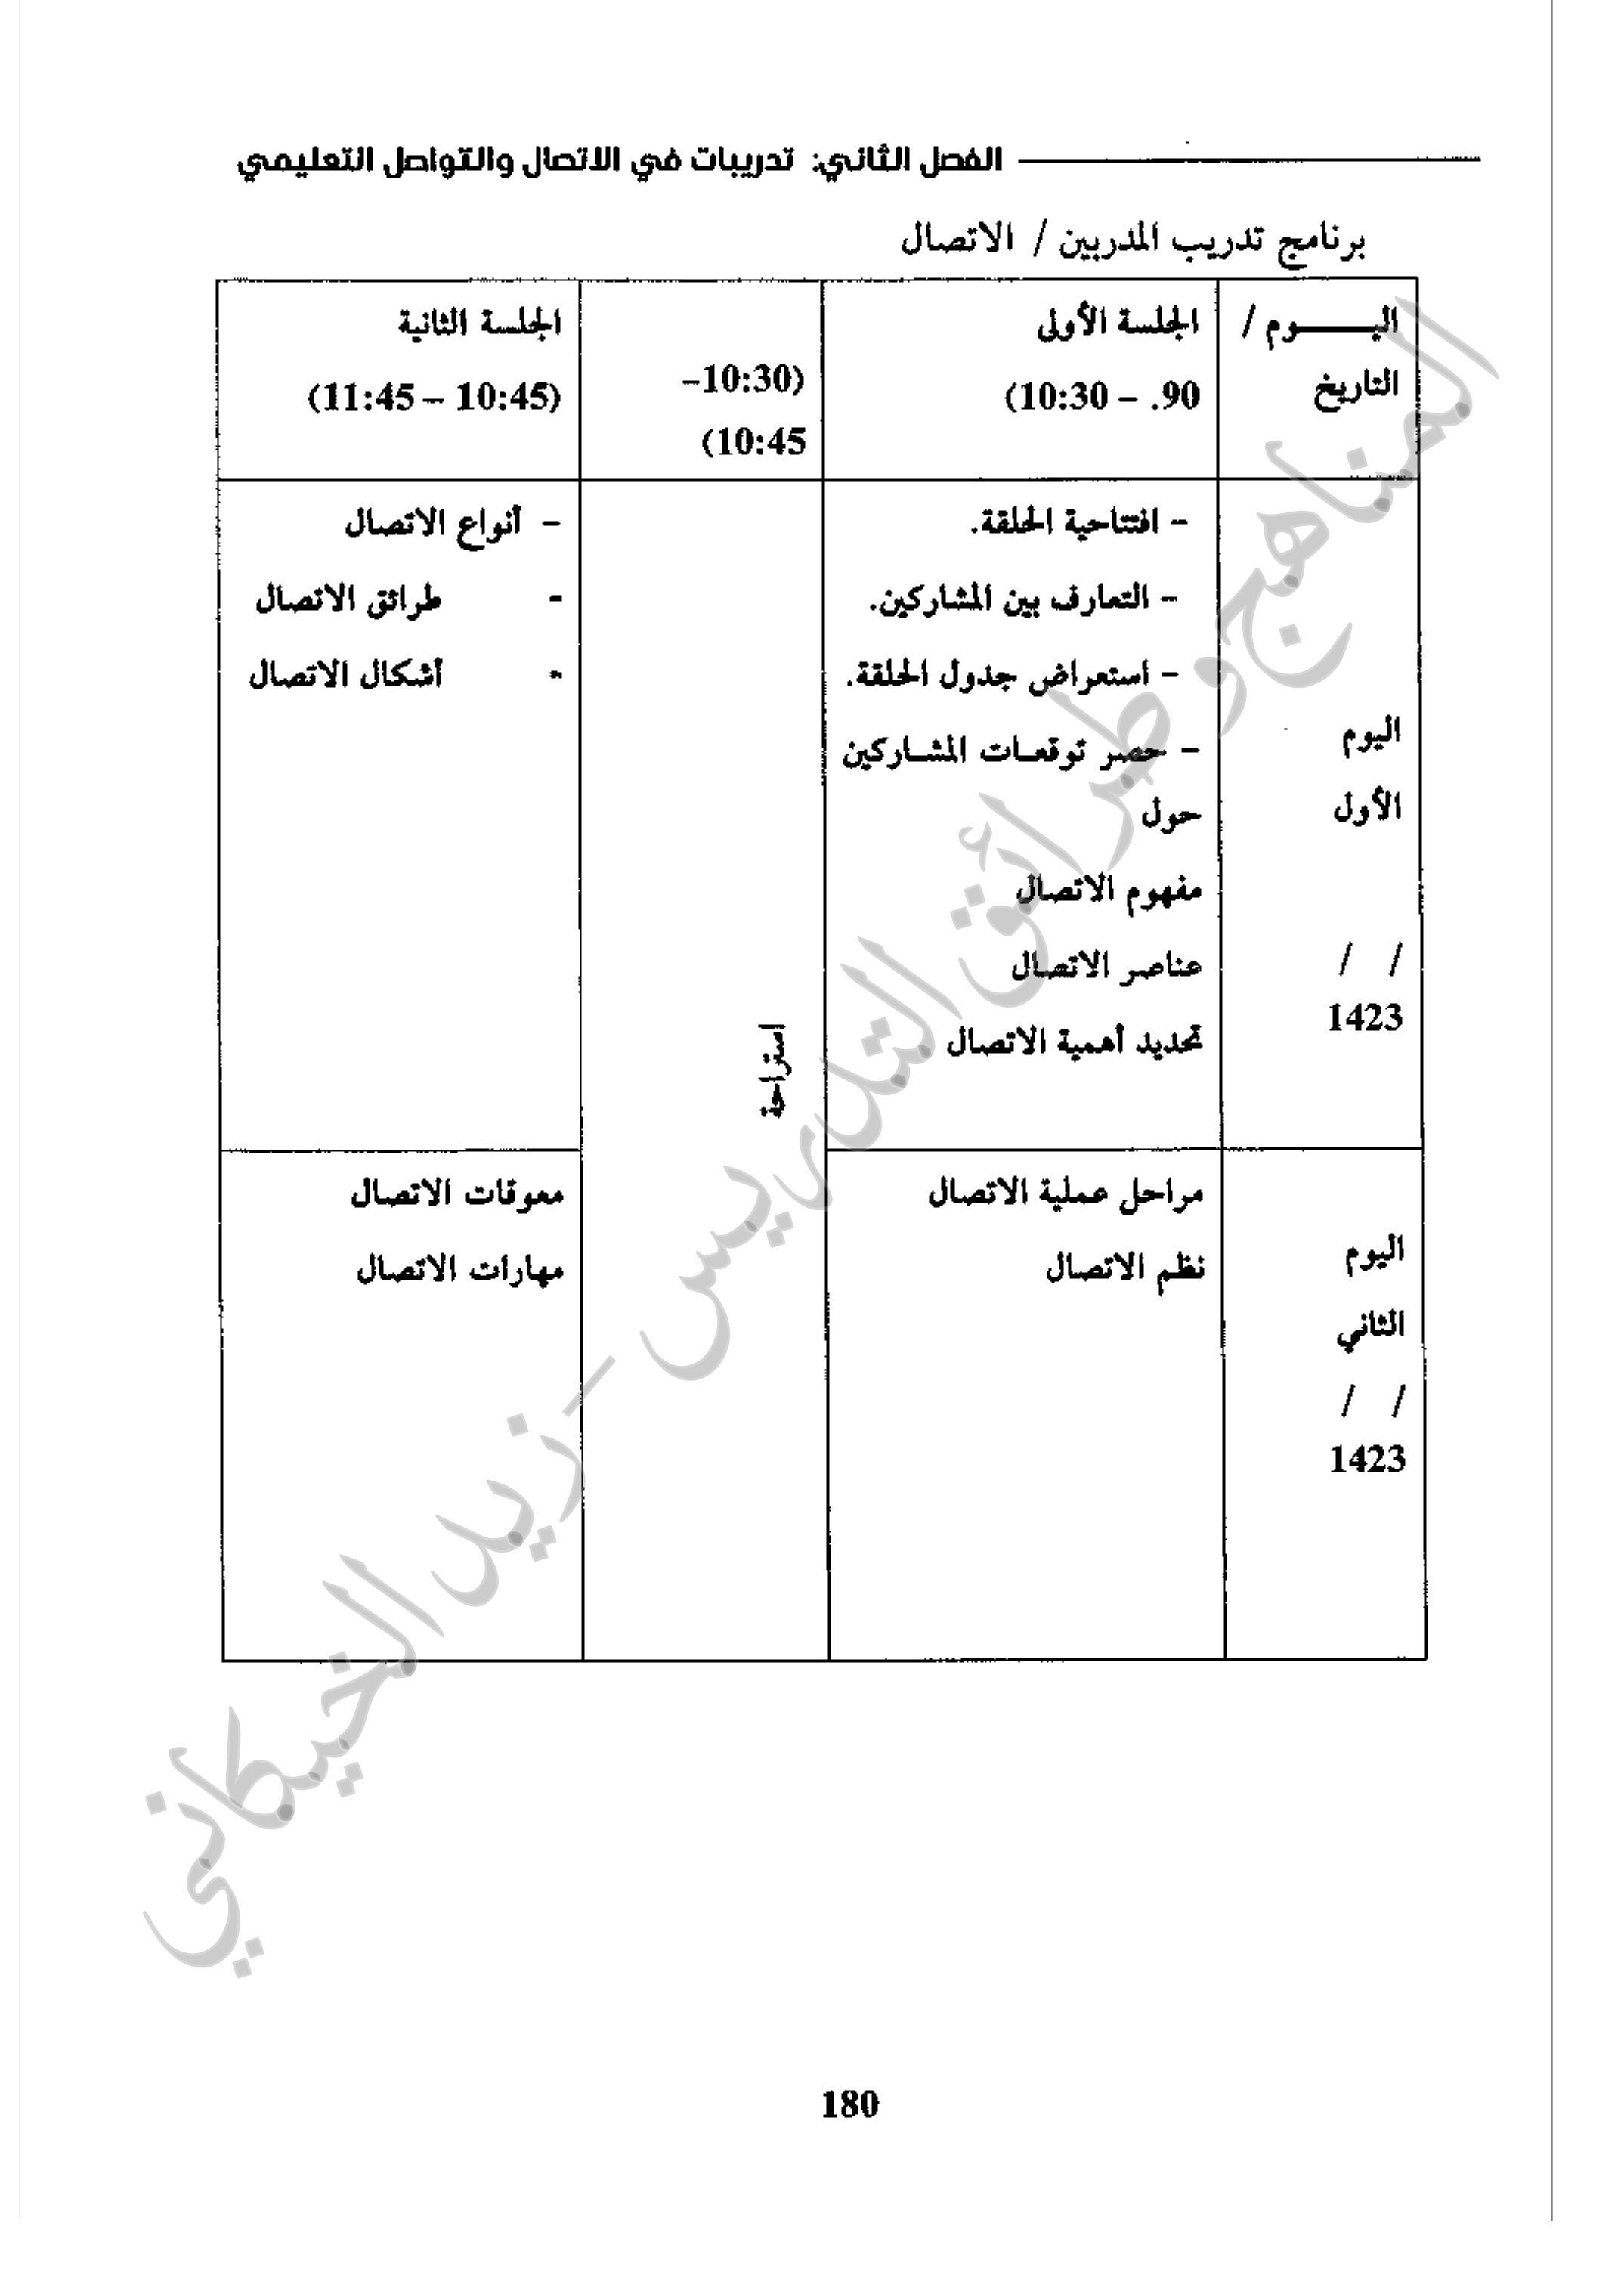 الفصل الثاني: تدريبات في الاتصال والتواصل التعليمي
برنامج تدريب المدربين / الاتصال
اليـــــوم /
التاريخ
الجلسة الأولى
90. – 10:30)
(10:30–
10:45)
الجلسة الثانية
(10:45 – 11:45)
اليوم
الأول
/ /
1423
– افتتاحية الحلقة.
– التعارف بين المشاركين.
– استعراض جدول الحلقة.
– حصر توقعـات المشـاركين
حول
مفهوم الاتصال
عناصر الاتصال
تحديد أهمية الاتصال
استراحة
– أنواع الاتصال
- طرائق الاتصال
- أشكال الاتصال
اليوم
الثاني
/ /
1423
مراحل عملية الاتصال
نظم الاتصال
معوقات الاتصال
مهارات الاتصال
المناهج وطرائق التدريس - زيد الخيكاني
180